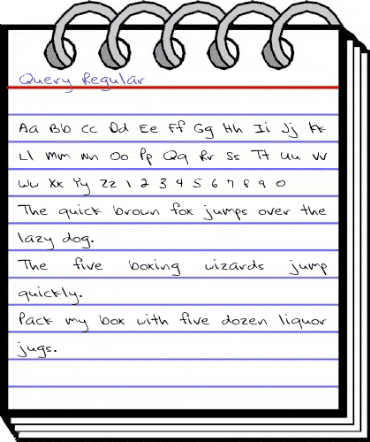 Query Regular
Aa Bb Cc Dd Ee Ff Gg Hh Ii Jj Kk
Ll Mm Nn Oo Pp Qq Rr Ss Tt Uu Vv
Ww Xx Yy Zz 1 2 3 4 5 6 7 8 9 0
The quick brown fox jumps over the
lazy dog.
The five boxing wizards jump
quickly.
Pack my box with five dozen liquor
jugs.